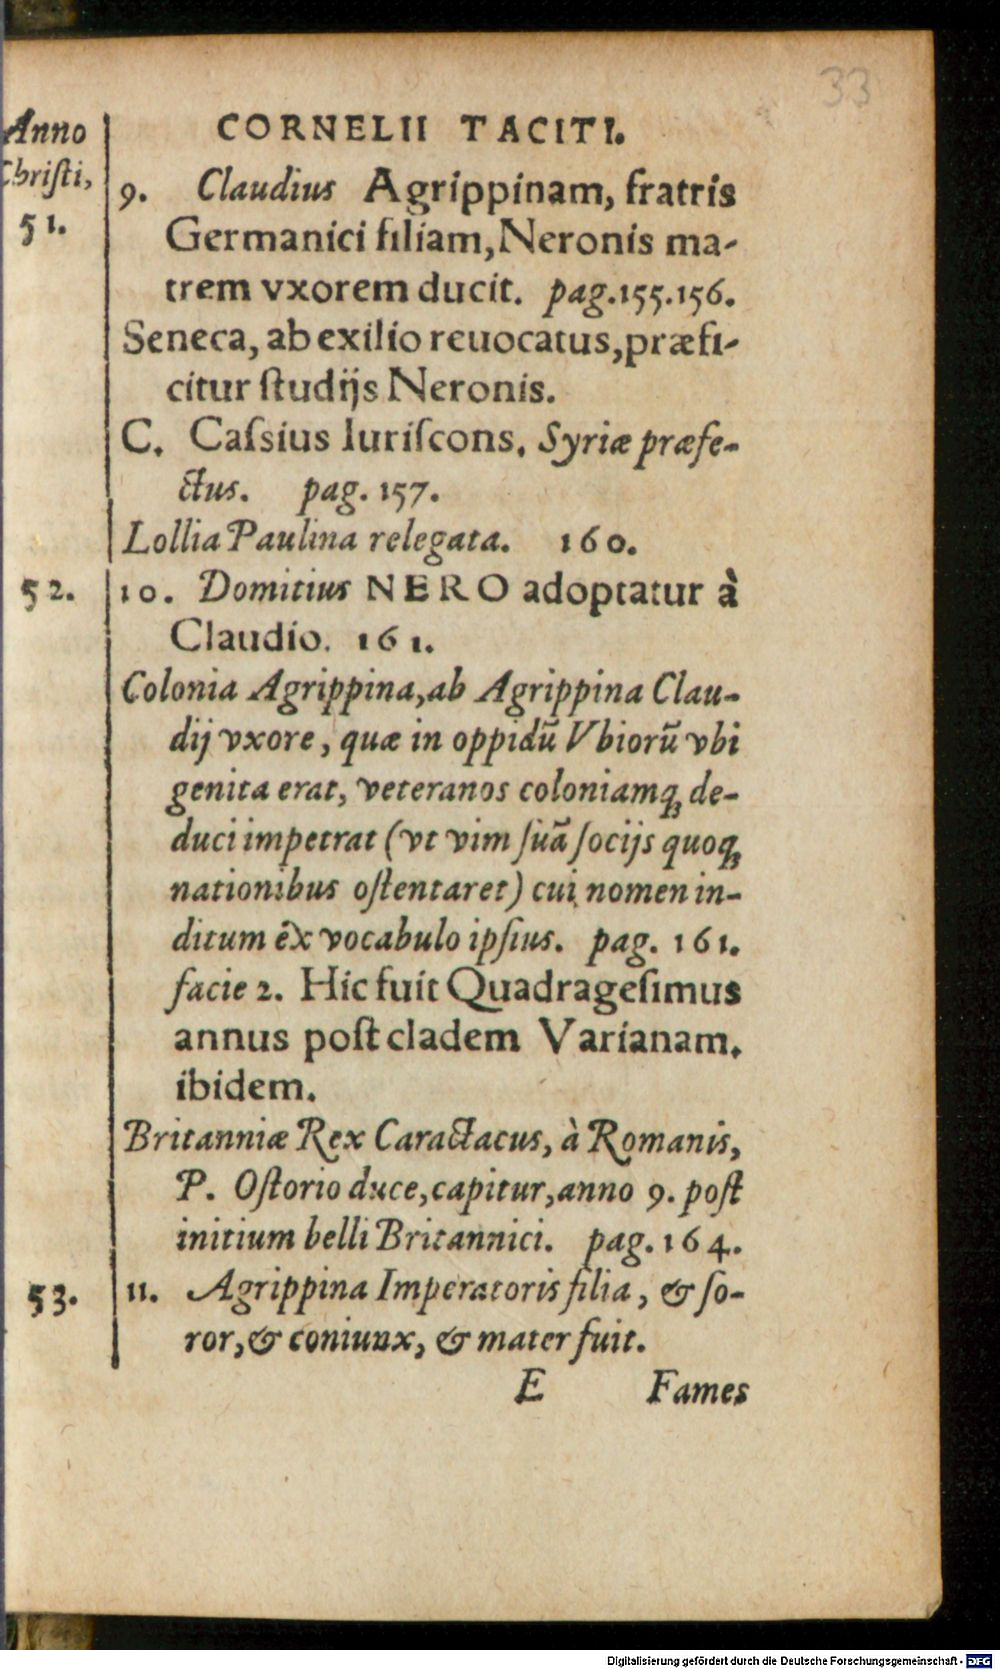 33
Anno CORNELII TACITI.
Christi, 9. Claudius Agrippinam, fratris
51. Germanici filiam, Neronis ma-
trem vxorem ducit. pag. 155. 156.
Seneca, ab exilio reuocatus, præfi-
citur ſtudijs Neronis.
C. Caſsius Iuriſcons. Syriæ præfe-
ctus. pag. 157.
Lollia Paulina relegata. 160.
52. 10. Domitius NERO adoptatur à
Claudio. 161.
Colonia Agrippina, ab Agrippina Clau-
dij vxore, quæ in oppidũ Vbiorũ vbi
genita erat, veteranos coloniamq́; de-
duci impetrat (vt vim ſuã ſocijs quoq́;
nationibus oſtentaret) cui nomen in-
ditum ex vocabulo ipſius. pag. 161.
facie 2. Hic fuit Quadrageſimus
annus poſt cladem Varianam.
ibidem.
Britanniæ Rex Caractacus, à Romanis,
P. Oſtorio duce, capitur, anno 9. poſt
initium belli Britannici. pag. 164.
53. 11. Agrippina Imperatoris filia, & ſo-
ror, & coniunx, & mater fuit.
E Fames
Digitalisierung gefördert durch die Deutsche Forschungsgemeinschaft - DFG